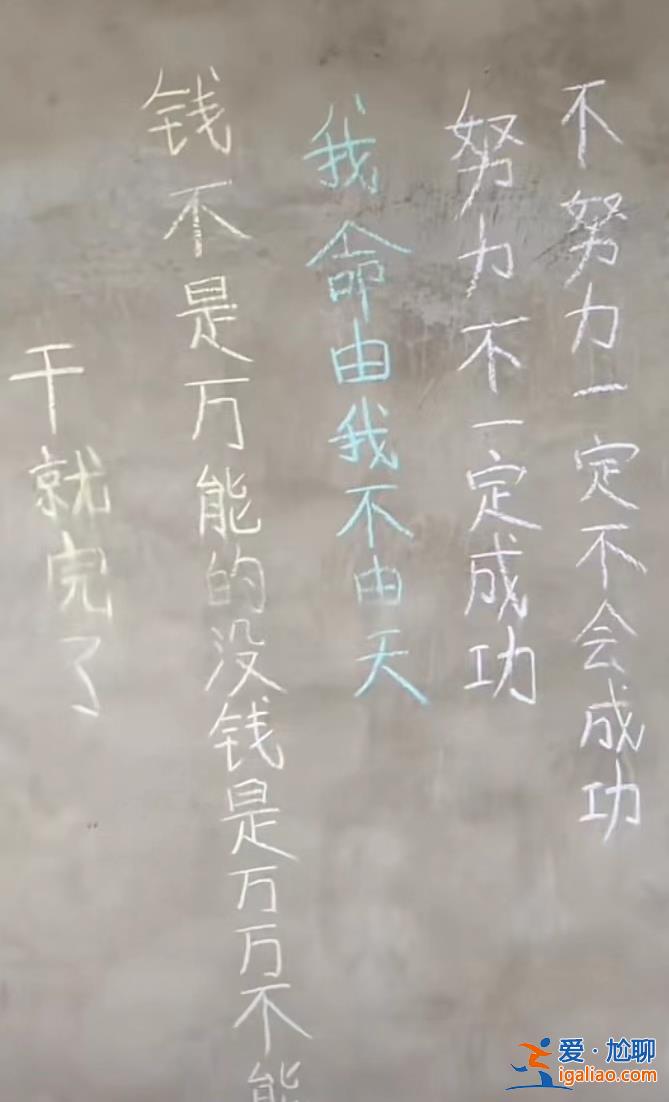 不努力一定不会成功
努力不一定成功
我命由我不由天
钱不是万能的没钱是万万不能
干就完了
爱·尬聊
igaliao.com